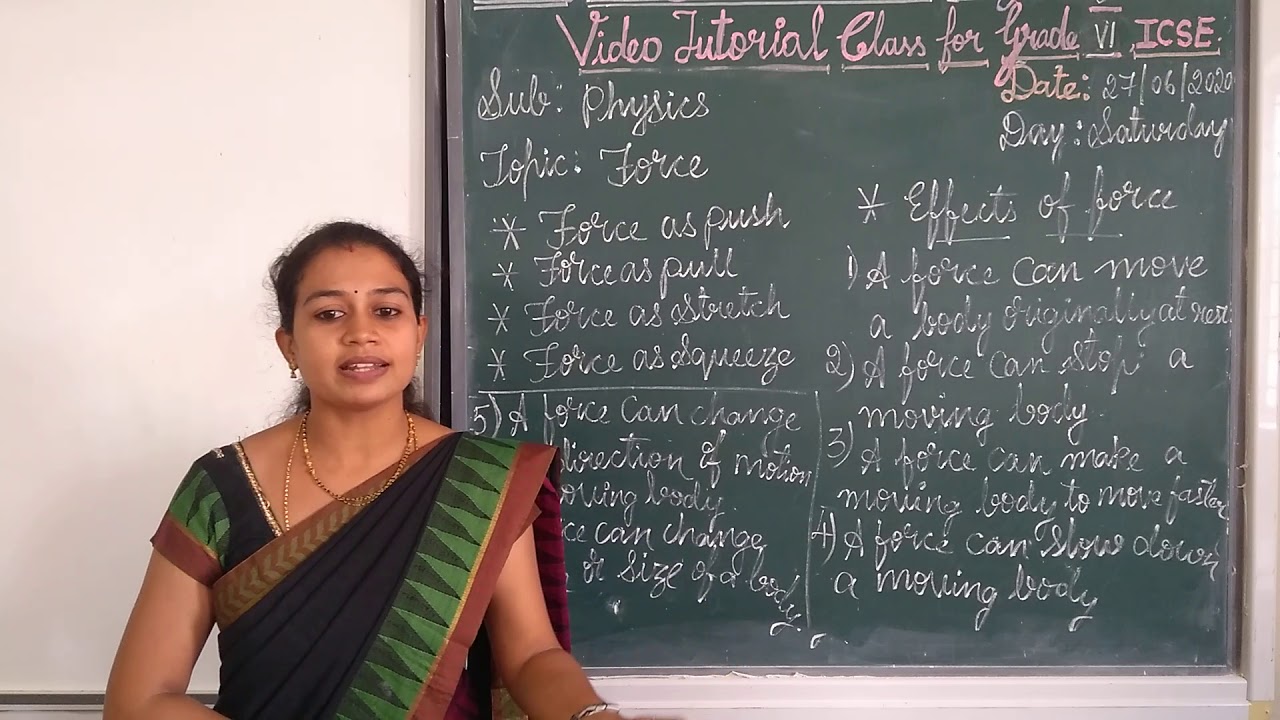 Video Tutorial Class for Grade VI ICSE.
Date: 27/06/2020
Day: Saturday
Sub: Physics
Topic: Force
* Force as push
* Force as pull
* Force as Stretch
* Force as Squeeze
* Effects of force
1) A force can move
a body originally at rest
2) A force can stop a
moving body.
3) A force can make a
moving body to move faster
4) A force can slow down
a moving body
5) A force can change
direction of motion
body.
can change
or size of a body.